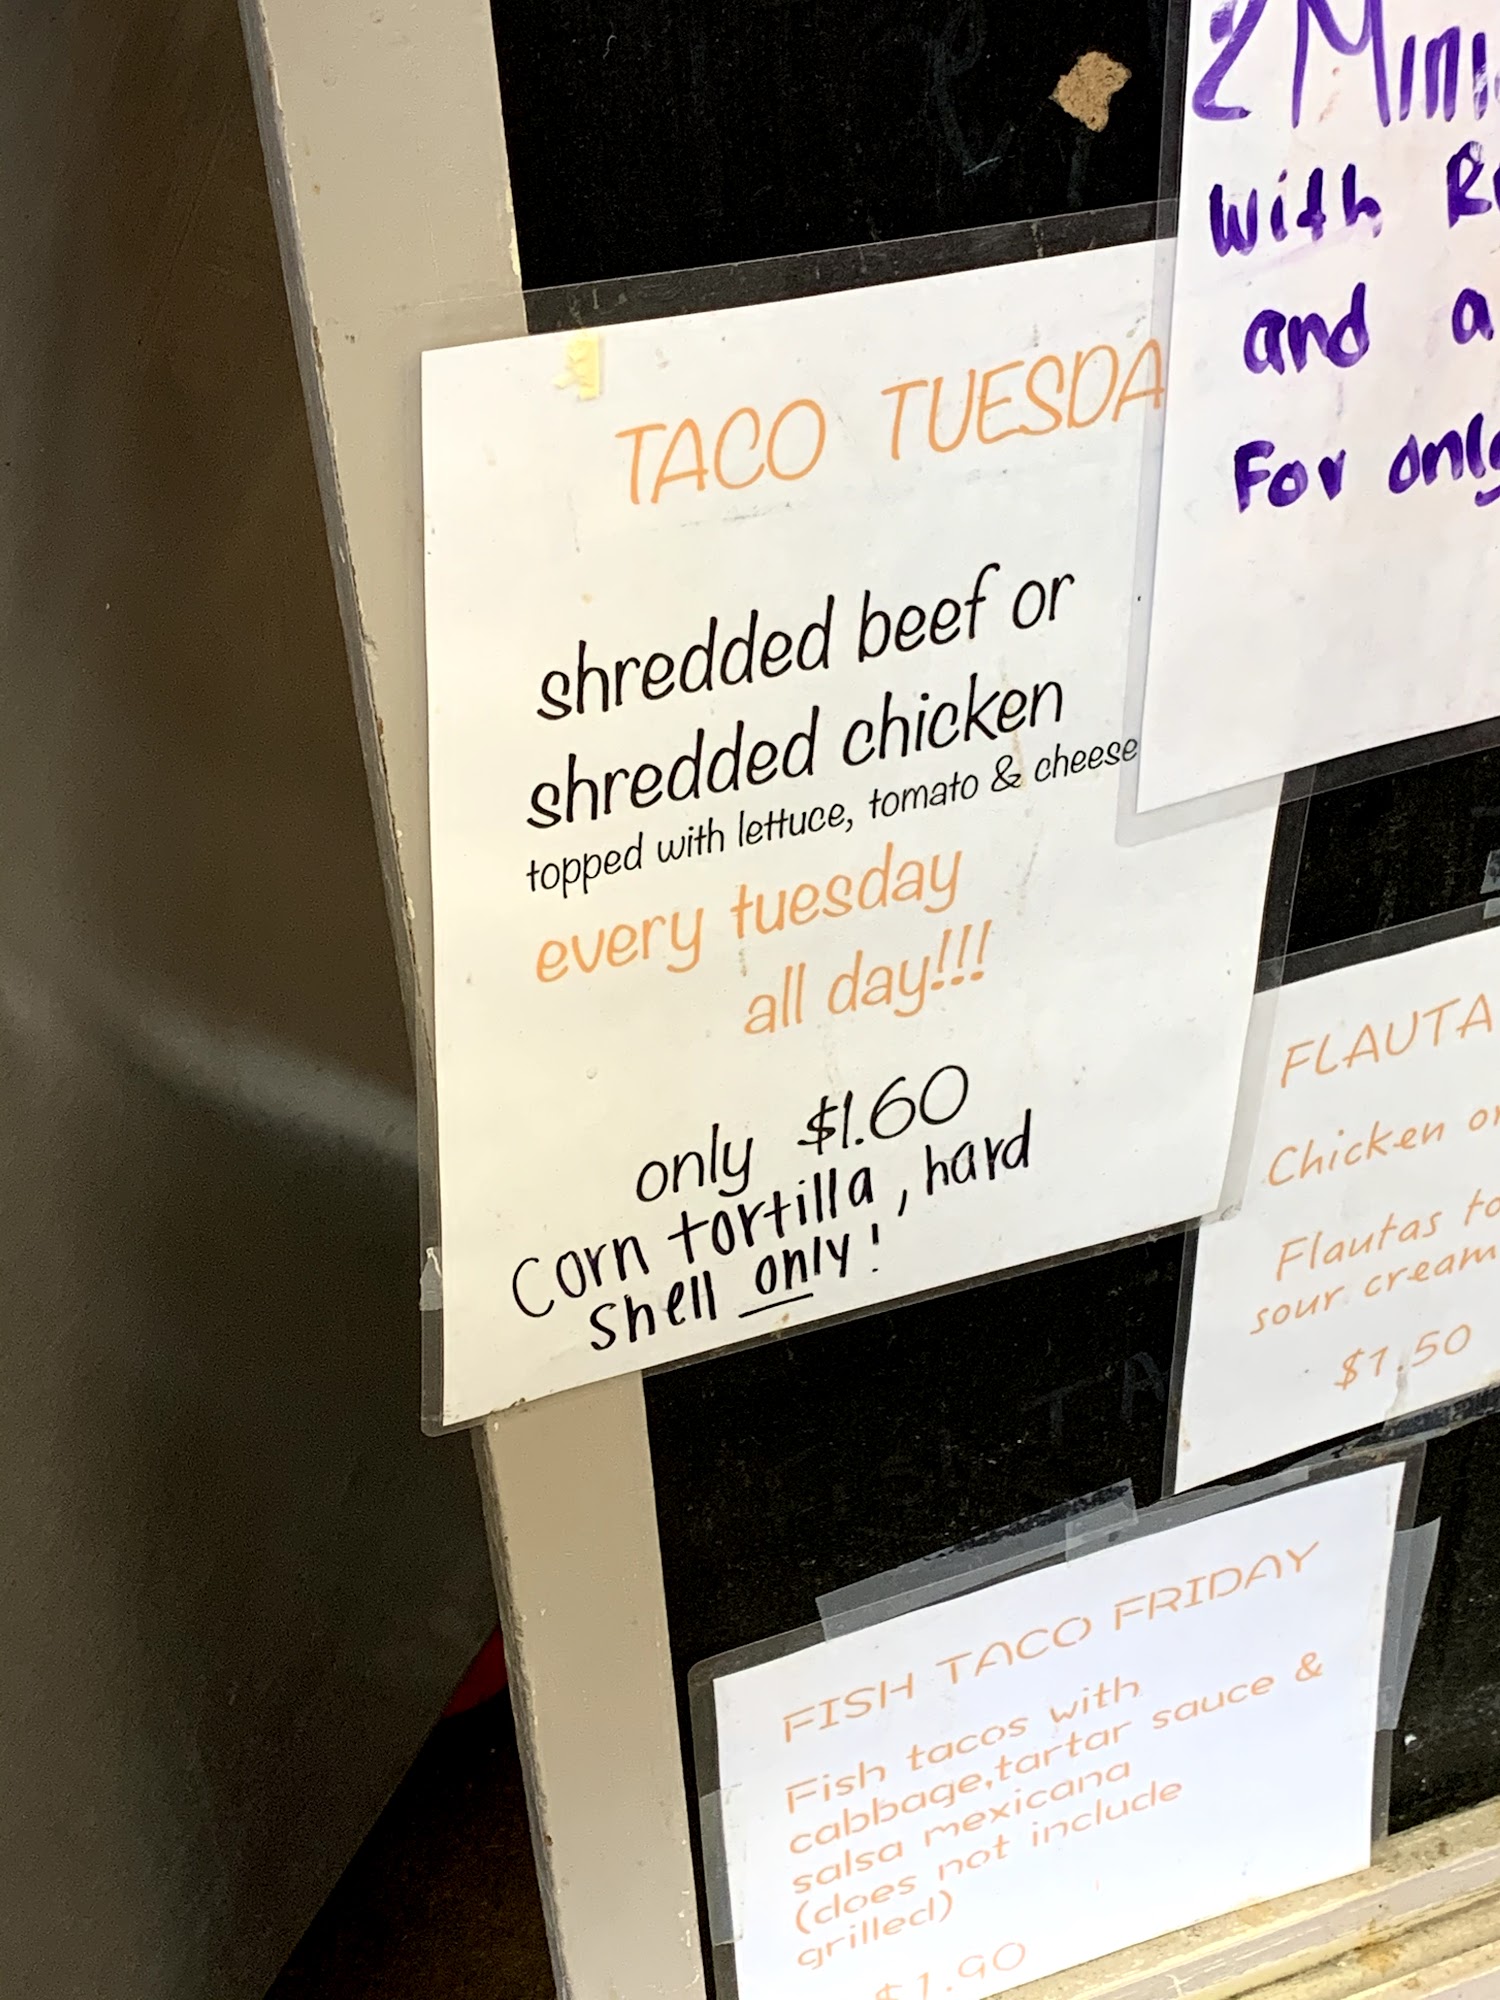 TACO TUESDA
shredded beef or
shredded chicken
topped with lettuce, tomato & cheese
every tuesday
all day!!!
only $1.60
Corn tortilla, hard
shell only!
2 Mini
with
and a
For only
FLAUTA
Chicken or
Flautas to
sour cream
$1.50
FISH TACO FRIDAY
Fish tacos with
cabbage,tartar sauce &
salsa mexicana
(does not include
grilled)
$1.90